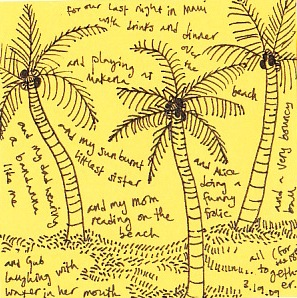 for our last night in Maui
with drinks and dinner
on
the
beach
and playing at
Makena
and my sunburnt
littlest sister
and my dad wearing
a bandanna
like me
and my mom
reading on the
beach
and Alice
doing a
funny
frolic
and a very bouncy
ball
and Gub
laughing with
water in her mouth
all
together
3.19.09